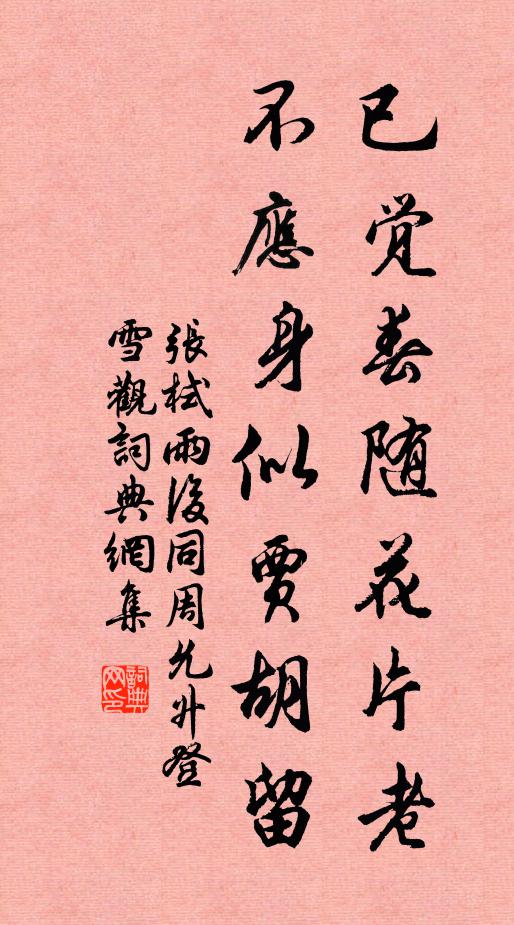 已觉春随花片老
不應身似賈胡留
張栻雨後同周允升登
雪觀詞典網集
詞典网印